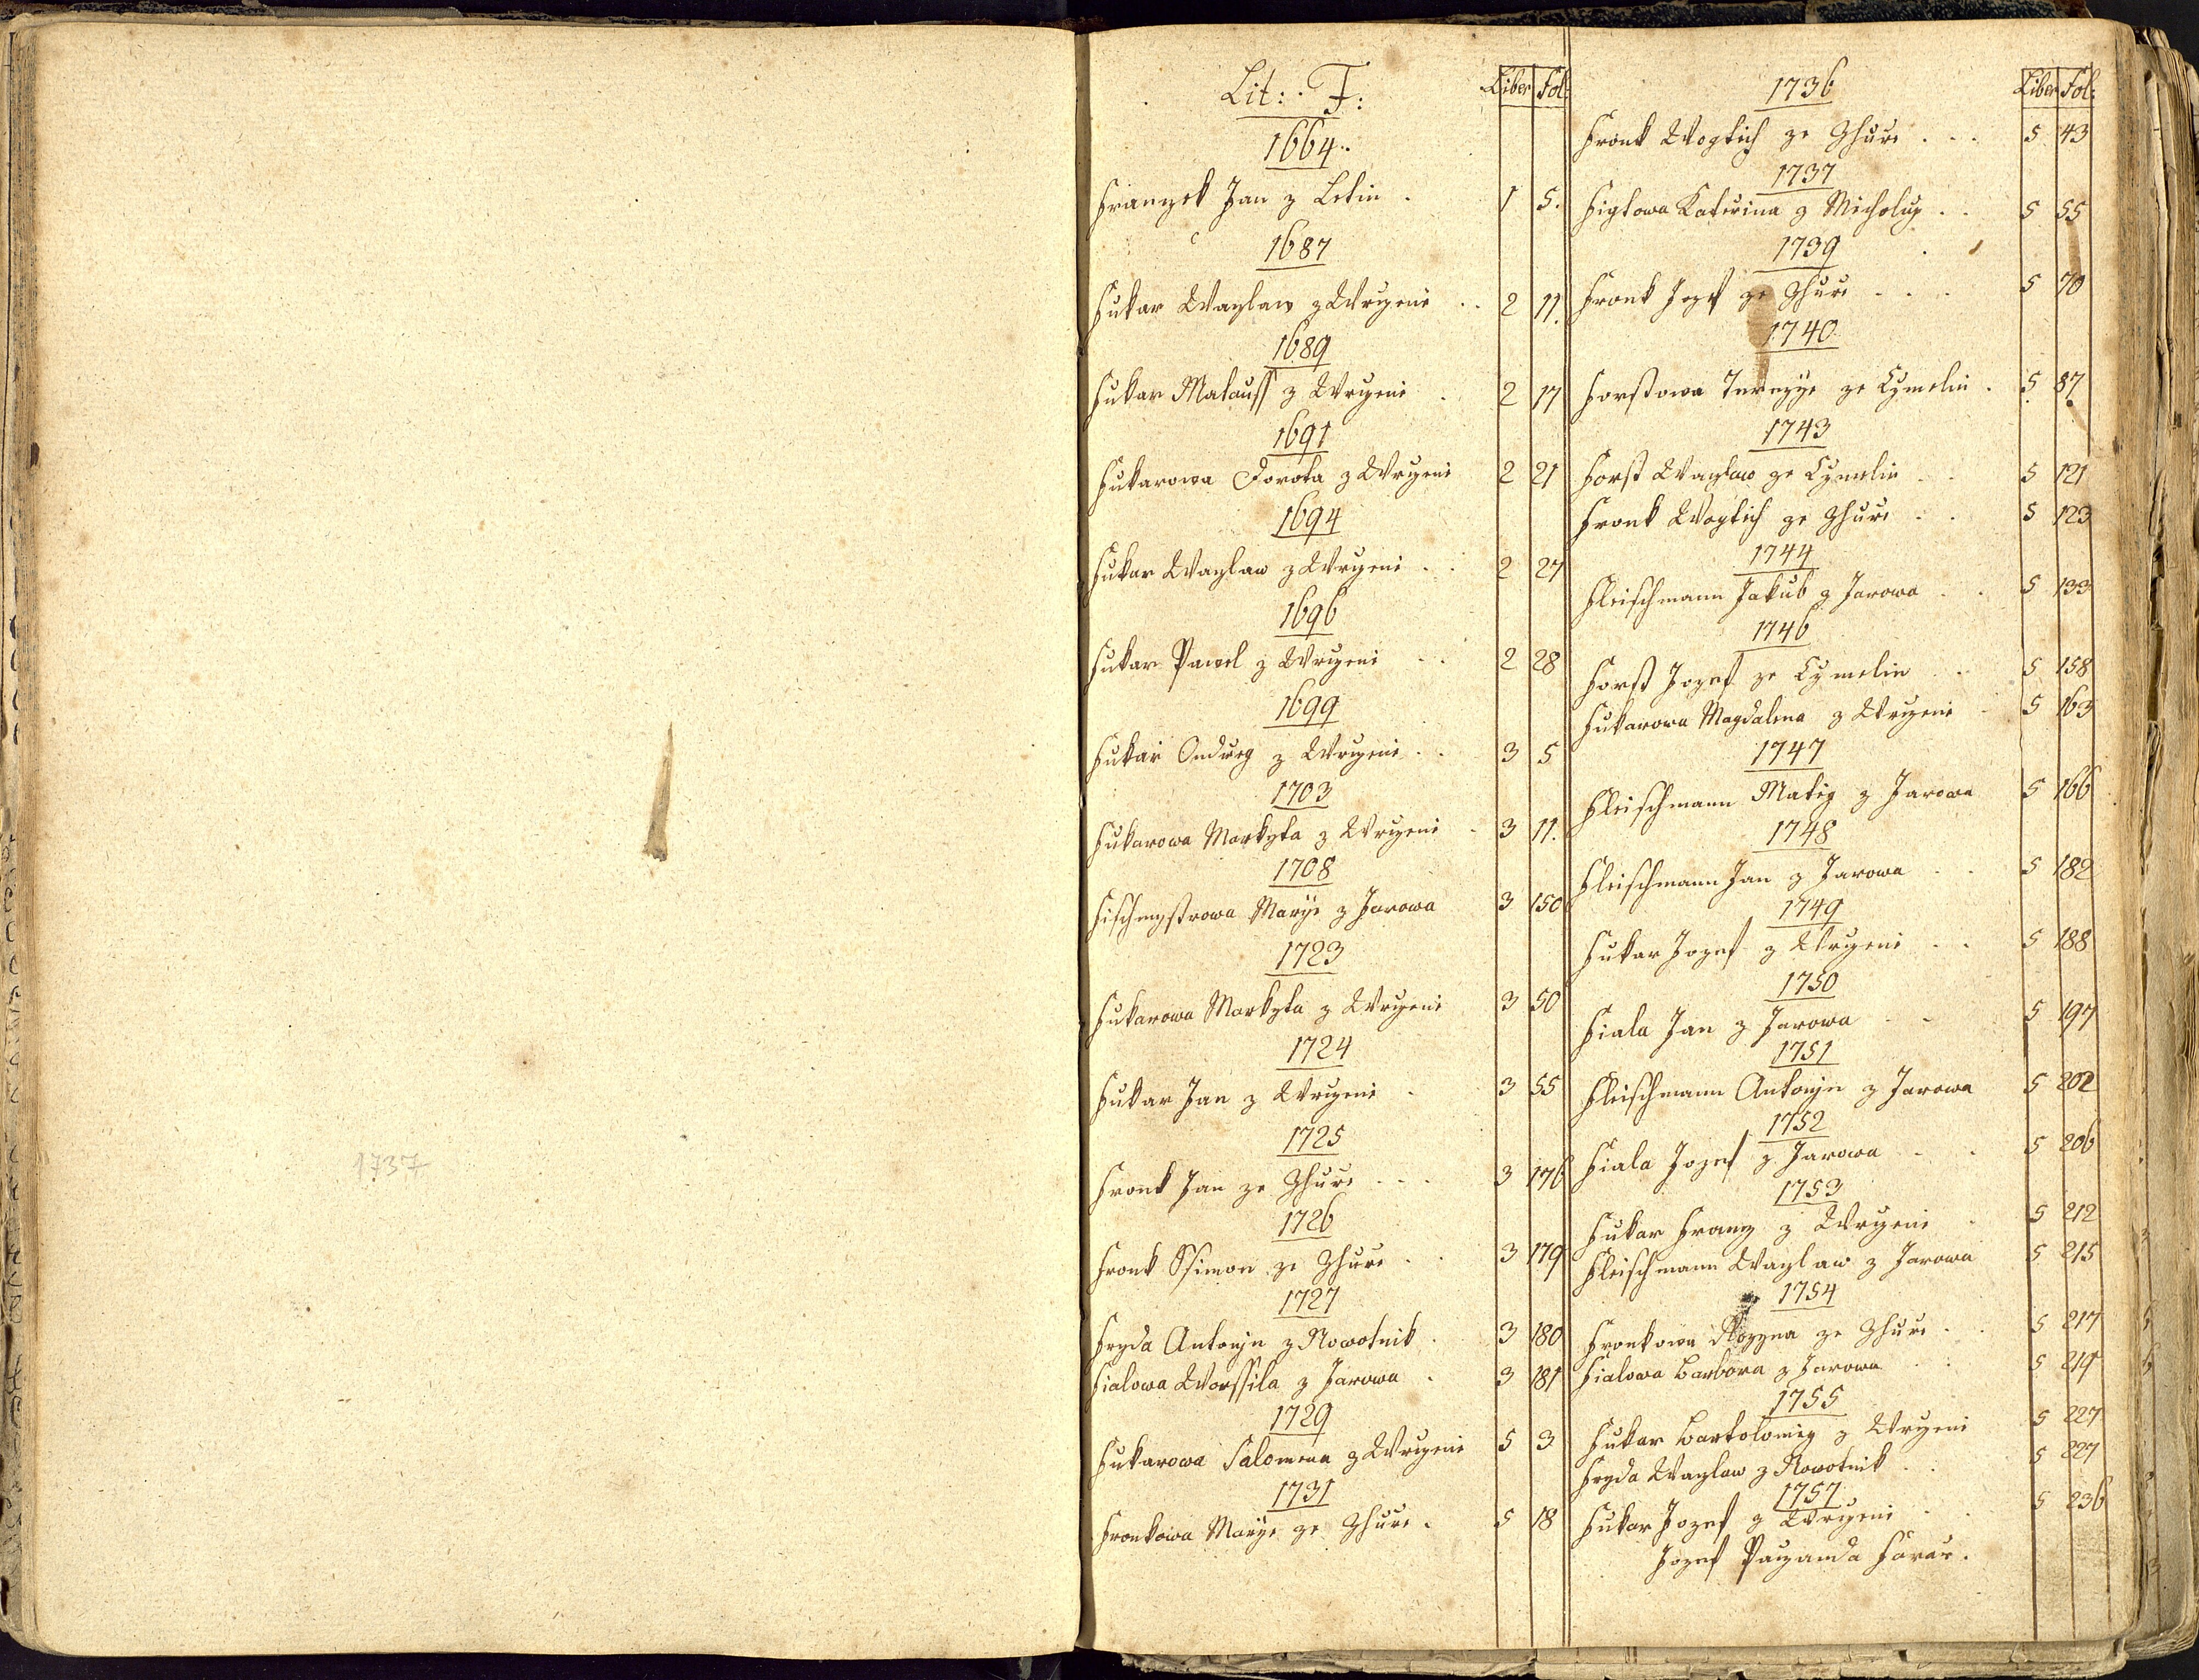 1737
Lit: F:
Liber Fol:
1664
Franzek Jan z Letin . 1 5.
1687
Fukar Wazlaw z Wrzeni . . 2 11.
1689
Fukar Matauss z Wrzeni . 2 17
1691
Fukarowa Dorota z Wrzeni 2 21
1694
Fukar Wazlaw z Wrzeni . . 2 27
1696
Fukar Pawel z Wrzeni . . 2 28
1699
Fukar Ondrzeg z Wrzeni . . 3 5
1703
Fukarowa Markyta z Wrzeni . 3 11.
1708
Fischmystrowa Marye z Jarowa 3 150
1723
Fukarowa Markyta z Wrzeni 3 50
1724
Fukar Jan z Wrzeni . 3 55
1725
Fronk Jan ze Zhure . . . 3 176
1726
Fronk Ssimon ze Zhure . . 3 179
1727
Fryda Antonjn z Nowotnik . 3 180
Fialowa Worssila z Jarowa . 3 181
1729
Fukarowa Salomena z Wrzeni 5 3
1731
Fronkowa Marye ze Zhure . 5 18
1736
Liber Fol:
Fronk Wogtich ze Zhure . . . 5 43
1737
Figlowa Katerina z Micholup . . 5 55
1739
Fronk Jozef ze Zhure . . . 5 70
1740
Forstowa Terezye ze Czmelin . 5 87
1743
Forst Wazlaw ze Czmelin . . 5 121
Fronk Wogtich ze Zhure . . 5 123
1744
Fleischmann Jakub z Jarowa . . 5 133
1746
Forst Jozef ze Czmelin . . 5 158
Fukarowa Magdalena z Wrzeni . 5 163
1747
Fleischmann Matig z Jarowa 5 166
1748
Fleischmann Jan z Jarowa . . 5 182
1749
Fukar Jozef z Wrzeni . . 5 188
1750
Fiala Jan z Jarowa . . 5 197
1751
Fleischmann Antonjn z Jarowa 5 202
1752
Fiala Jozef z Jarowa . . 5 206
1753
Fukar Franz z Wrzeni . 5 212
Fleischmann Wazlaw z Jarowa 5 215
1754
Fronkowa Rozyna ze Zhure . . 5 217
Fialowa Barbora z Jarowa . . 5 219
1755
Fukar Bartolomig z Wrzeni 5 227
Fryda Wazlaw z Nowotnik . . 5 227
1757
Fukar Jozef z Wrzeni . . 5 236
Jozef Pauzanda Farar.